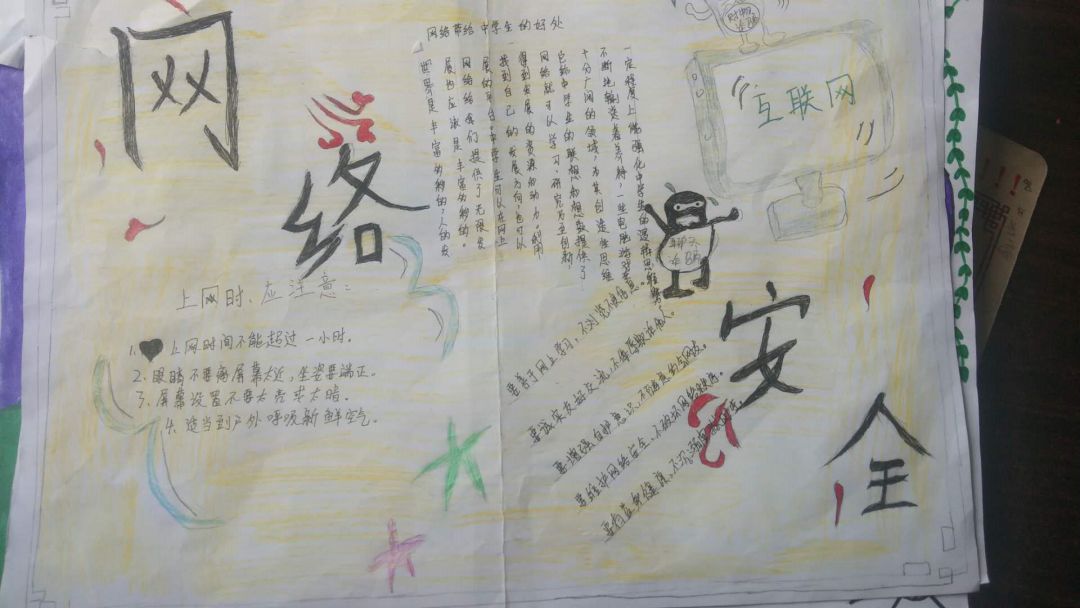 网
络
安
全
网络带给中学生的好处
世界是丰富多彩的,人的发
展也应该是丰富多彩的。
网络给我们提供了无限发
展的平台,中学生可以在网上
找到自己的发展方向,也可以
得到发展的资源和动力。利用
网络就可以学习、研究乃至创新
它给中学生的联想和想象提供了
十分广阔的领域,为其创造性思维
不断地输送着养料,一些电脑游戏
一定程度上能强化中学生的逻辑思维
互联网
聊天
上网时、应注意:
1. 上网时间不能超过一小时.
2.眼睛不要离屏幕太近,坐姿要端正.
3.屏幕设置不要太亮或太暗.
4.适当到户外呼吸新鲜空气.
要善于网上学习,不浏览不良信息.
要诚实友好交流,不侮辱欺诈他人.
要增强自护意识,不随意约会网友.
要维护网络安全,不破坏网络秩序.
要有益身心健康,不沉溺